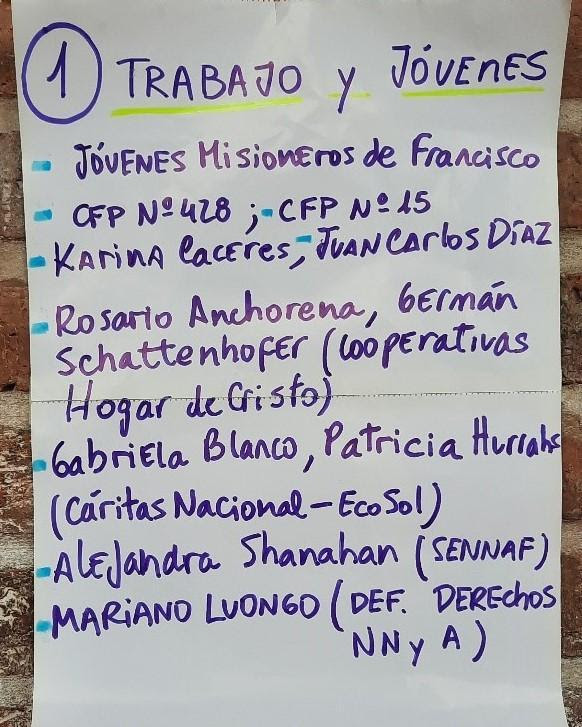 1 TRABAJO y JÓVENES
- JÓVENES Misioneros de Francisco
- CFP Nº 428 ;- CFP Nº 15
- KARINA CACERES, JUAN CARLOS DÍAZ
- Rosario Anchorena, GERMÁN
Schattenhofer (Cooperativas
Hogar de Cristo)
- GabriEla Blanco, Patricia
(Cáritas Nacional - EcoSol)
- AlEjandra Shanahan (SENNAF)
- MARIANO LUONGO (DEF. DEREchos
NN y A)